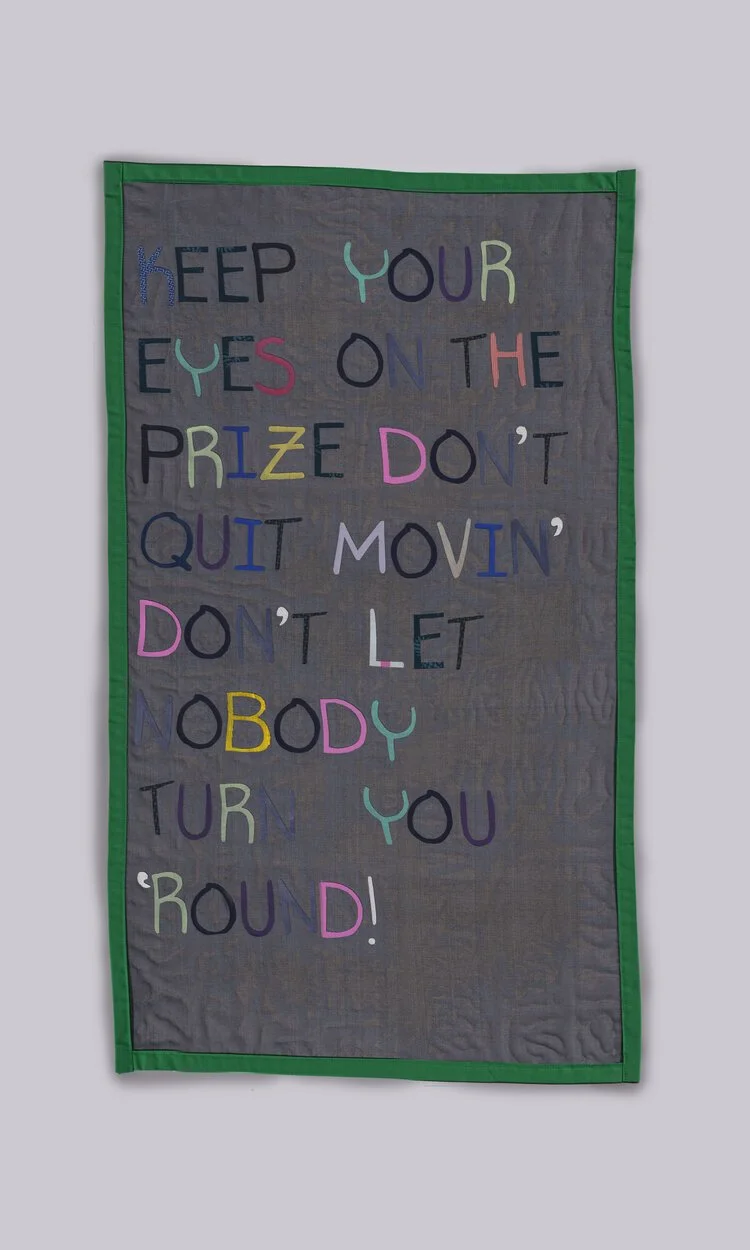 KEEP YOUR
EYES ON THE
PRIZE DON'T
QUIT MOVIN'
DON'T LET
NOBODY
TURN YOU
'ROUND!